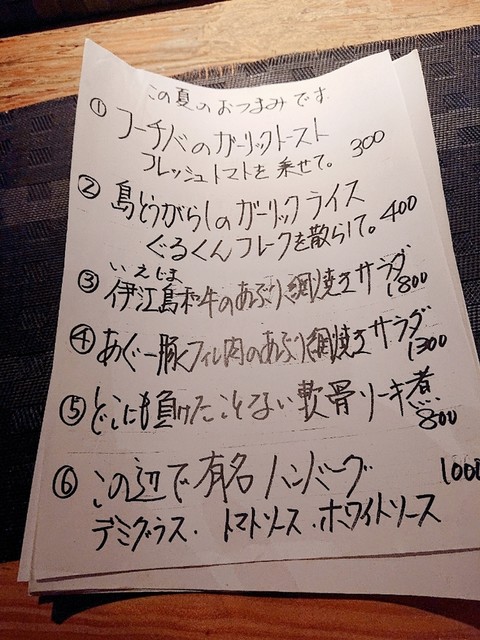 この夏のおつまみです
① フーチバのガーリックトースト
フレッシュトマトを乗せて。 300
② 島とうがらしのガーリックライス
ぐるくんフレークを散らして。 400
いえじま
③ 伊江島和牛のあぶり網焼きサラダ
1800
④ あぐー豚フィレ肉のあぶり網焼きサラダ
1300
⑤ どこにも負けたことない軟骨ソーキ煮
800
⑥ この辺で有名ハンバーグ 1000
デミグラス. トマトソース.ホワイトソース